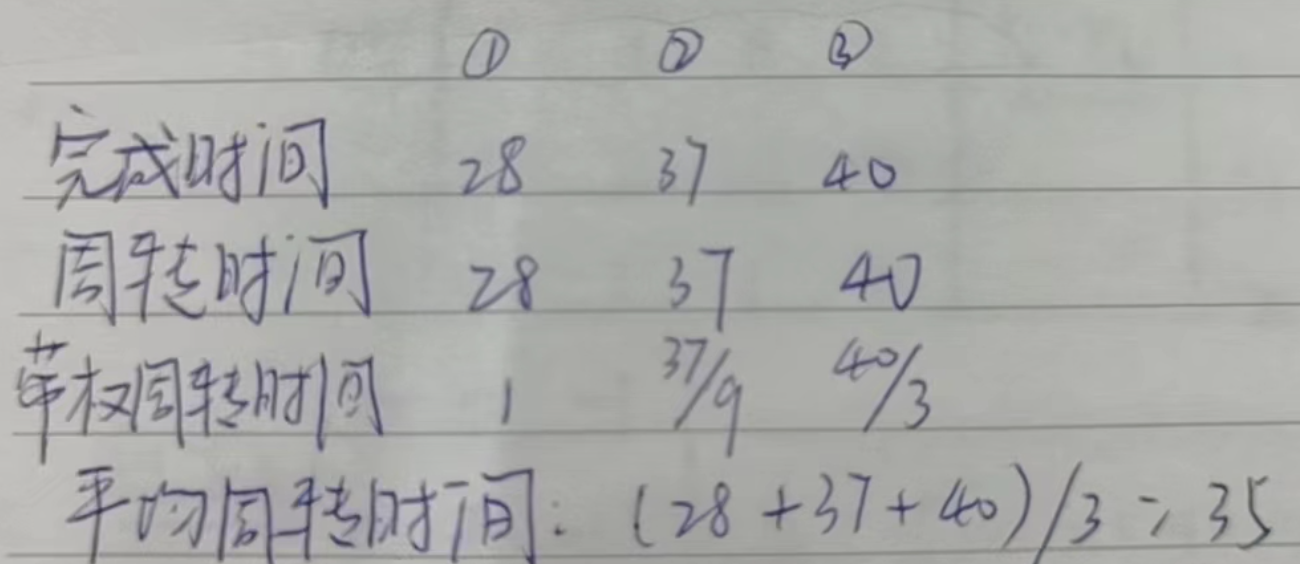 ① ② ③
完成时间 28 37 40
周转时间 28 37 40
带权周转时间 1 37/9 40/3
平均周转时间: (28+37+40)/3 = 35